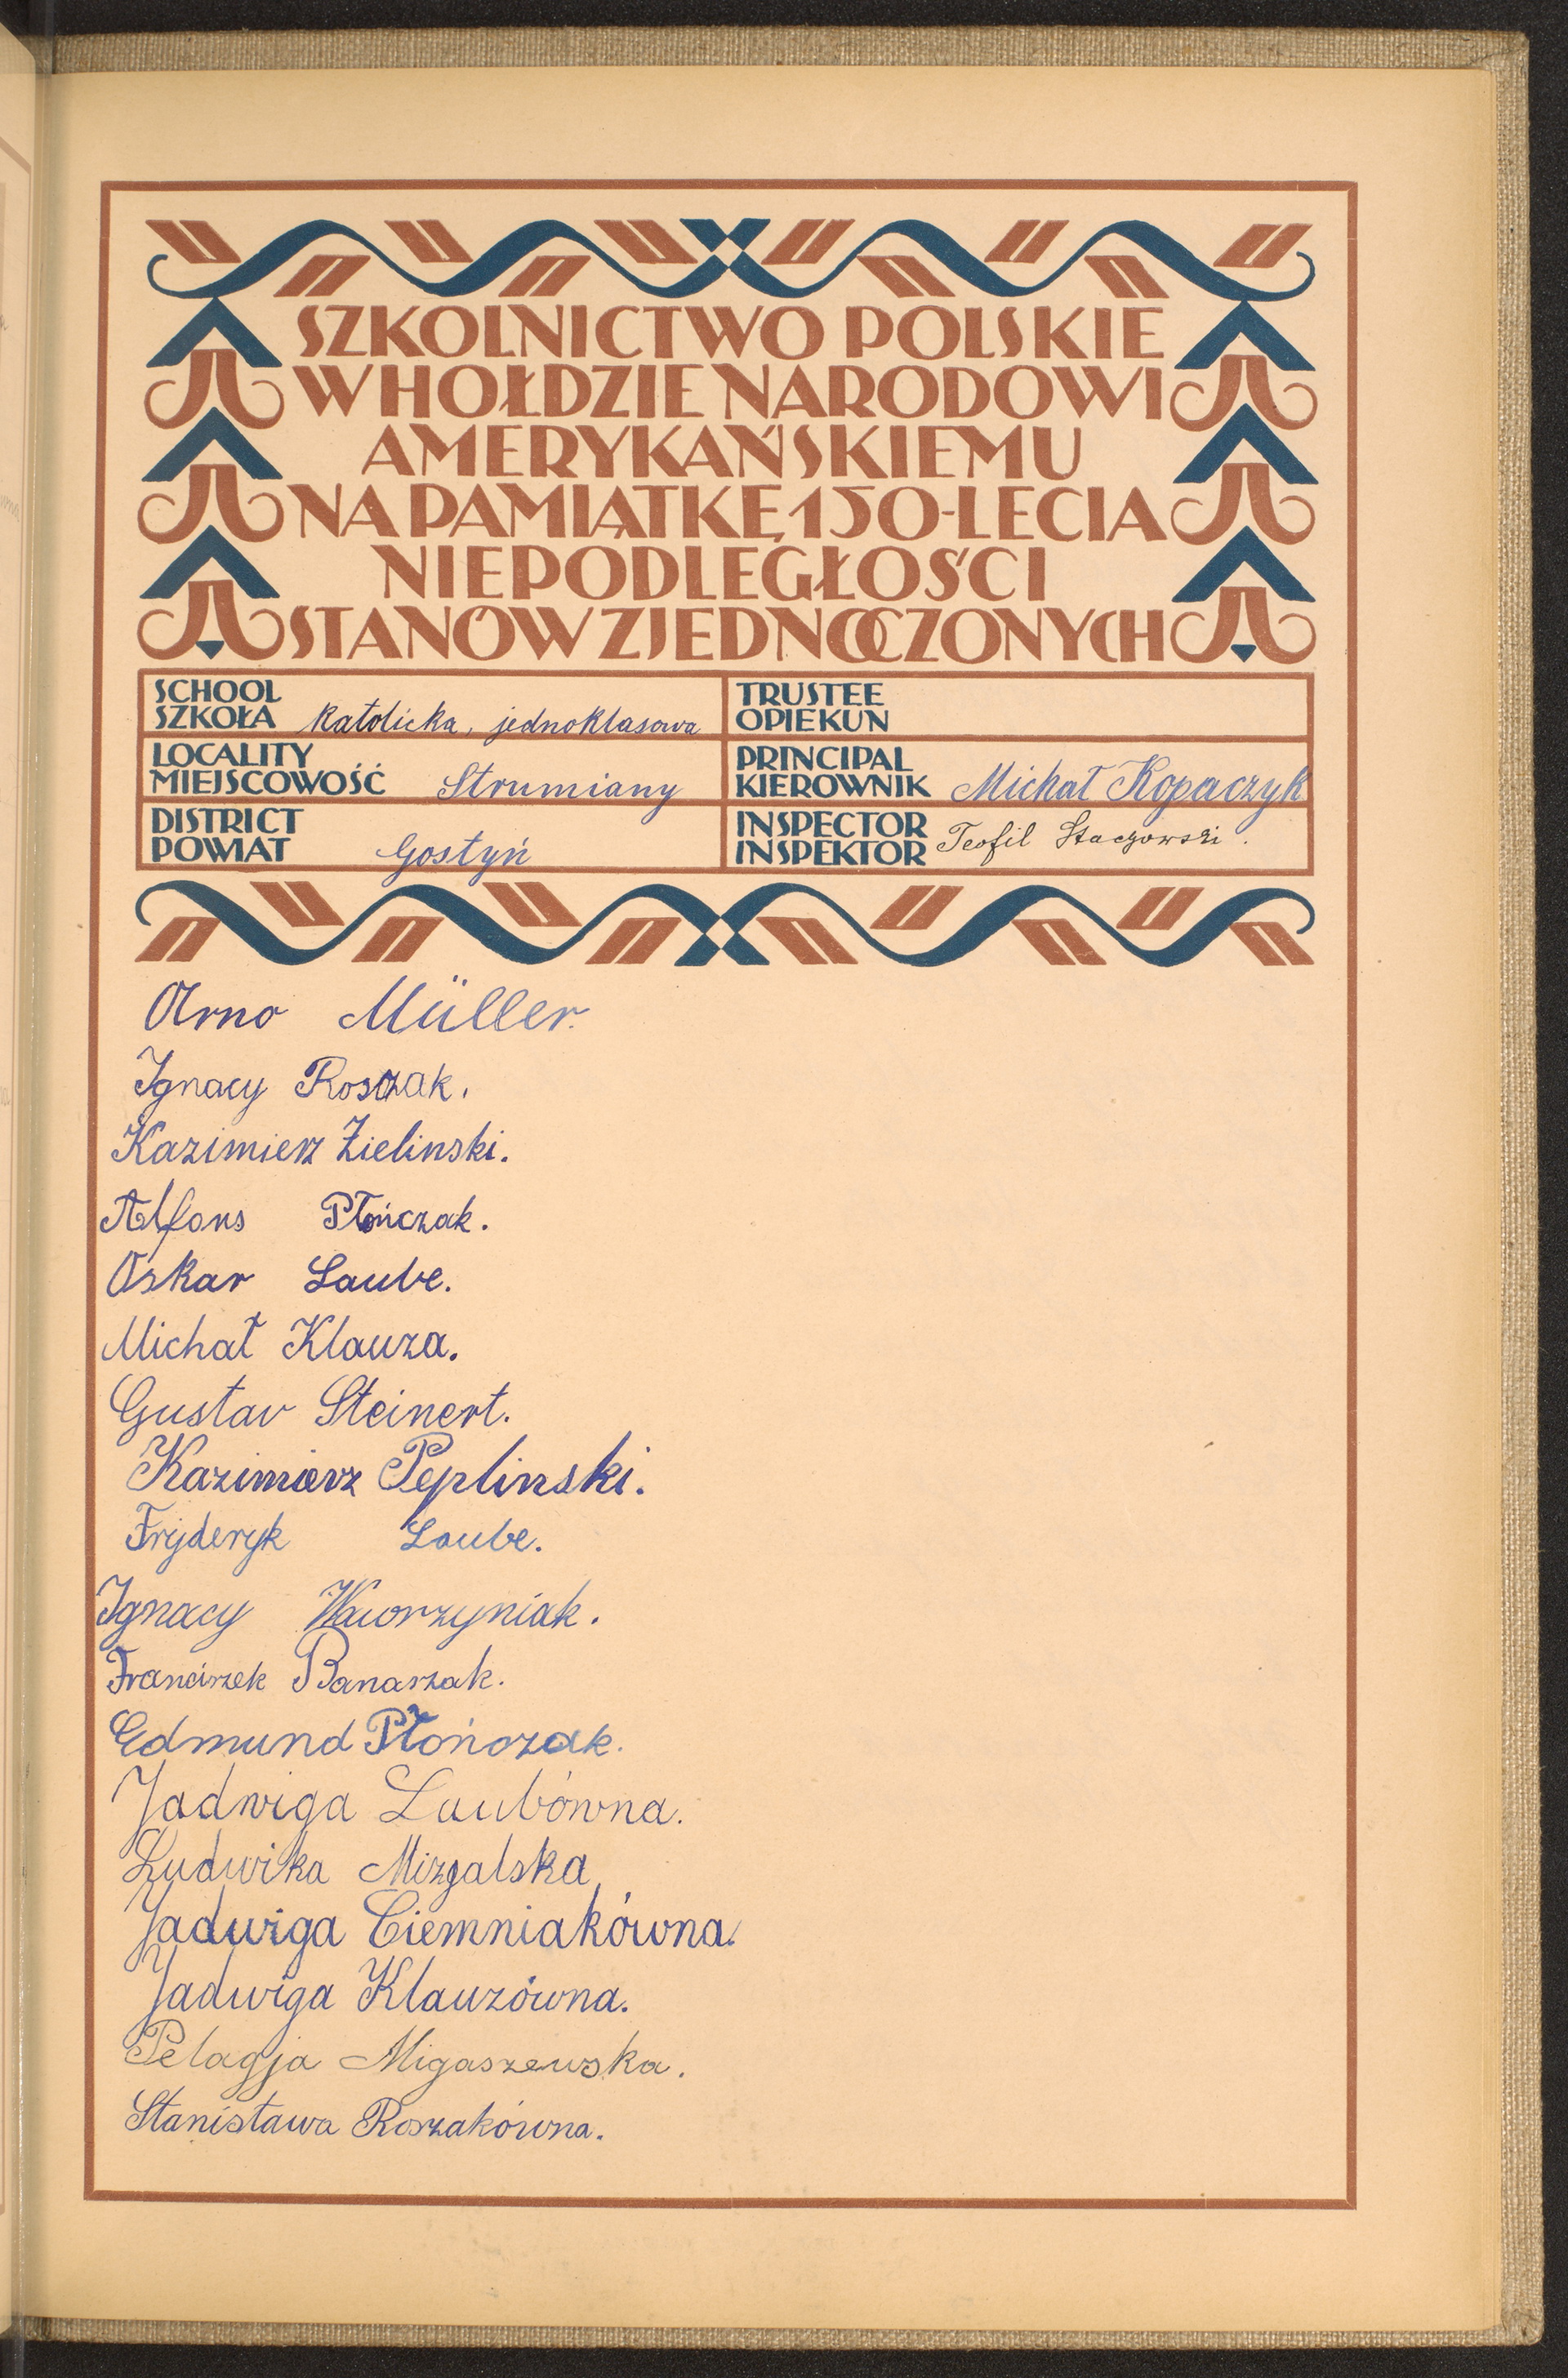 SZKOLNICTWO POLSKIE
W HOŁDZIE NARODOWI
AMERYKAŃSKIEMU
NA PAMIĄTKĘ 150-LECIA
NIEPODLEGŁOŚCI
STANÓW ZJEDNOCZONYCH
SCHOOL
SZKOŁA katolicka, jednoklasowa
TRUSTEE
OPIEKUN
LOCALITY
MIEJSCOWOŚĆ Strumiany
PRINCIPAL
KIEROWNIK Michał Kopaczyk
DISTRICT
POWIAT Gostyń
INSPECTOR
INSPEKTOR Teofil Staczowski.
Arno Müller.
Ignacy Roszak.
Kazimierz Zielinski.
Alfons Płończak.
Oskar Laube.
Michał Klauza.
Gustav Steinert.
Kazimierz Peplinski.
Fryderyk Laube.
Ignacy Wawrzyniak.
Franciszek Banaszak.
Edmund Płończak.
Jadwiga Laubówna.
Ludwika Mizgalska
Jadwiga Ciemniakówna.
Jadwiga Klauzówna.
Pelagja Migaszewska.
Stanisława Roszakówna.